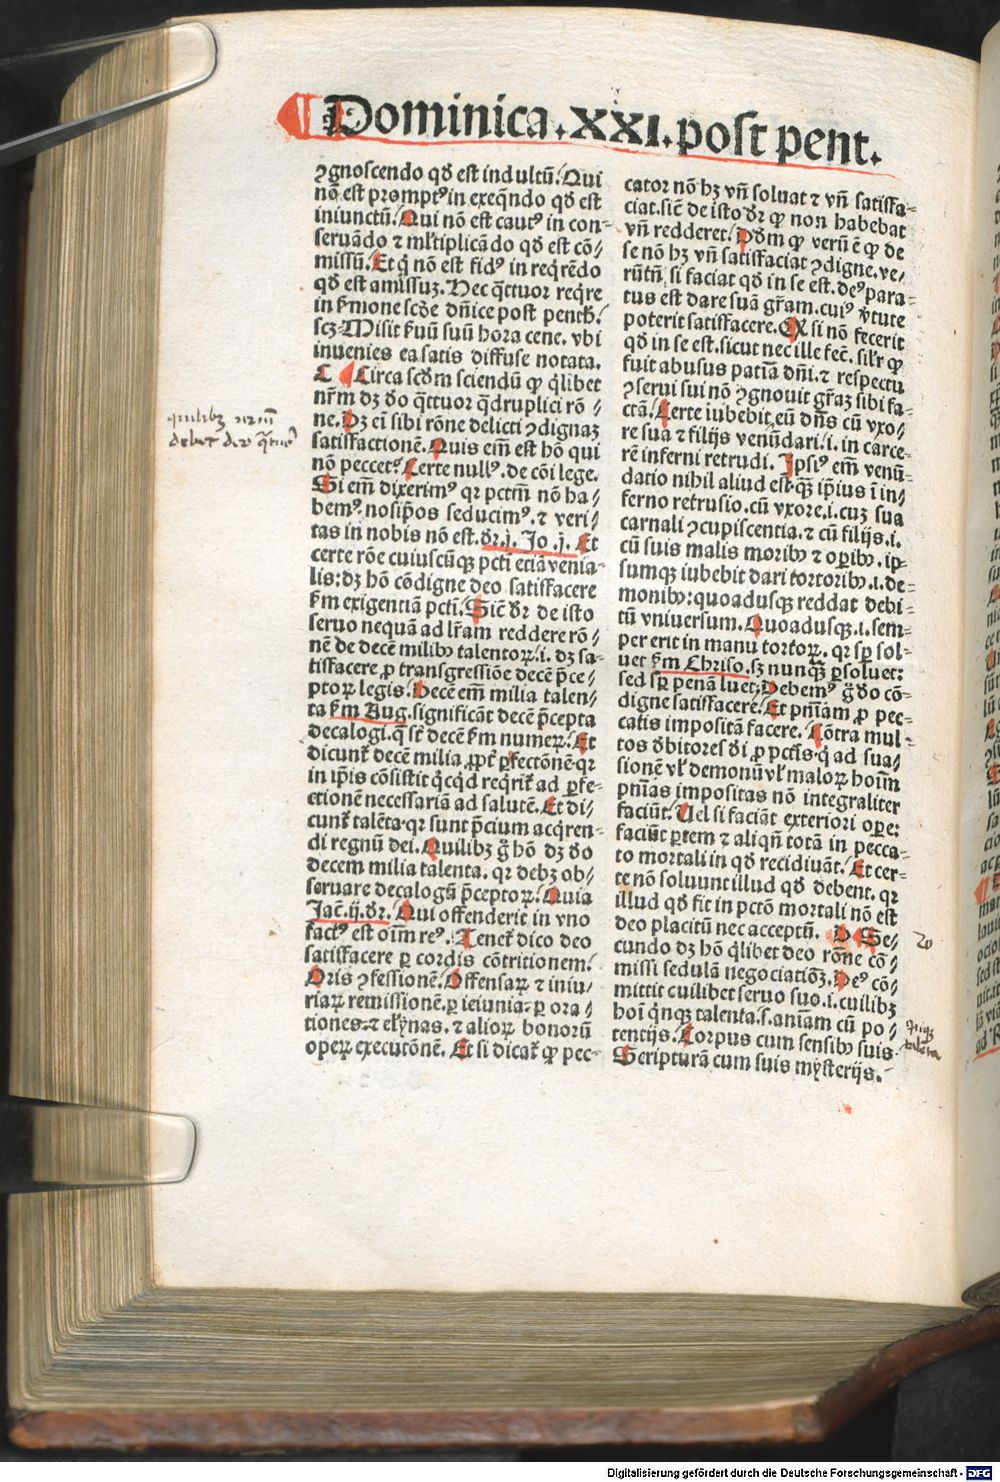 Dominica.XXI.post pent.
ꝯgnoscendo qđ est indultū. Qui
nō est prompt⁹ in exeq̄ndo qđ est
iniunctū. Qui nō est caut⁹ in con-
seruādo ⁊ mĺtiplicādo qđ est cō/
missū. Et q̇ nō est fid⁹ in req̇rēdo
qđ est amissuꝫ. Hec q̄ttuor req̇re
in ẜmone scđe dn̄ice post penth̄.
scꝫ Misit ẜuū suū hora cene. vbi
inuenies ea satis diffuse notata.
C Circa scđm sciendū ꝙ q̇libet
nr̄m dꝫ đo q̄ttuor q̄druplici rō/
ne. Pꝫ ei sibi rōne delicti ꝯdignaꝫ
satisfactionē. Quis em̄ est hō qui
nō peccet? Certe null⁹. de cōi lege.
Si em̄ dixerim⁹ qꝛ pctm̄ nō ha/
bem⁹. nosip̄os seducim⁹. ⁊ veri/
tas in nobis nō est. đr.j. Jo.j. Et
certe rōe cuiuscūqꝫ pcti etiā venia-
lis: dꝫ hō cōdigne deo satisfacere
ẜm exigentiā pcti. Sic̄ đr de isto
seruo nequā ad lr̄am reddere rō/
nē de decē milibꝰ talentoꝝ. i. dꝫ sa-
tisfacere ꝓ transgressiōe decē p̄ce-
ptoꝝ legis. Decē em̄ milia talen/
ta ẜm Aug. significāt decē p̄cepta
decalogi. q̄ st̄ decē ẜm numeꝝ. Et
dicunt̄ decē milia ꝓpt̄ ꝑfectōnē. qꝛ
in ip̄is cōsistit q̇cq̇d req̇rit̄ ad ꝑfe-
ctionē necessariā ad salutē. Et di/
cunt̄ talēta. qꝛ sunt p̄cium acq̇ren-
di regnū dei. Quilibꝫ g̊ hō dꝫ đo
decem milia talenta. qꝛ debꝫ ob/
seruare decalogū p̄ceptoꝝ. Quia
Jac̄.ij.đr. Qui offenderit in vno
fact⁹ est oīm re⁹. Tenet̄ dico deo
satisfacere ꝑ cordis cōtritionem.
Oris ꝯfessionē. Offensaꝝ ⁊ iniu/
riaꝝ remissionē. ꝑ ieiunia. ꝑ ora/
tiones. ⁊ elȳnas. ⁊ alioꝝ bonorū
opeꝝ executōnē. Et si dicat̄ ꝙ pec-
cator nō hꝫ vn̄ soluat ⁊ vn̄ satisfa-
ciat. sic̄ de isto đr ꝙ non habebat
vn̄ redderet. Dđm ꝙ verū ē ꝙ de
se nō hꝫ vn̄ satisfaciat ꝯdigne. ve/
rūtn̄ si faciat qđ in se est. de⁹ para-
tus est dare suā gr̄am. cui⁹ v̄tute
poterit satisfacere. Qꝛ si nō fecerit
qđ in se est. sicut nec ille fec̄. silr̄ ꝙ
fuit abusus patiā dn̄i. ⁊ respectu
ꝯserui sui nō ꝯgnouit gr̄aꝫ sibi fa-
ctā. Certe iubebit eū dn̄s cū vxo/
re sua ⁊ filijs venūdari. i. in carce-
rē inferni retrudi. Ipsi⁹ em̄ venū-
datio nihil aliud est. qꝫ̄ ip̄ius ī in/
ferno retrusio. cū vxore. i. cuꝫ sua
carnali ꝯcupiscentia. ⁊ cū filijs. i.
cū suis malis moribꝰ ⁊ oꝑibꝰ. ip-
sumqꝫ iubebit dari tortoribꝰ. i. de-
monibꝰ: quoadusqꝫ reddat debi-
tū vniuersum. Quoadusqꝫ. i. sem-
per erit in manu tortoꝝ. qꝛ sꝑ sol-
uet ẜm Chriso. sꝫ nunqꝫ̄ ꝑsoluet:
sed sꝑ penā luet. Debem⁹ g̊ đo cō-
digne satisfacere. Et pn̄iam ꝓ pec-
catis impositā facere. Cōtra mul-
tos đbitores đi ꝓ pctīs. q̇ ad sua/
sionē vĺ demonū vĺ maloꝝ hoīm
pn̄ias impositas nō integraliter
faciūt. Uel si faciāt exteriori oꝑe:
faciūt ꝑtem ⁊ aliqn̄ totā in pecca-
to mortali in qđ recidiuāt. Et cer-
te nō soluunt illud qđ debent. qꝛ
illud qđ fit in pctō mortali nō est
deo placitū nec acceptū. D Se/
cundo dꝫ hō q̇libet deo rōne cō/
missi sedulā negociatiōꝫ. De⁹ cō/
mittit cuilibet seruo suo. i. cuilibꝫ
hoī q̇nqꝫ talenta. s. aniam cū po/
tentijs. Corpus cum sensibꝰ suis
Scripturā cum suis mysterijs.
2o
Digitalisierung gefördert durch die Deutsche Forschungsgemeinschaft - DFG